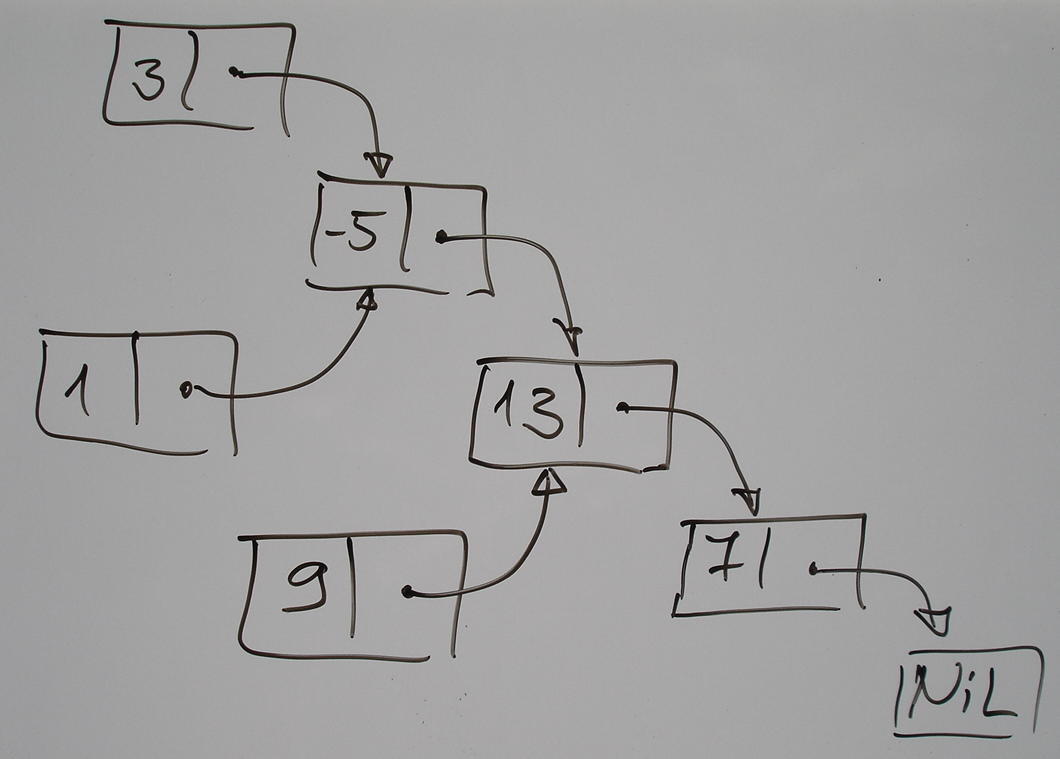 3
-5
1
13
9
7
NiL